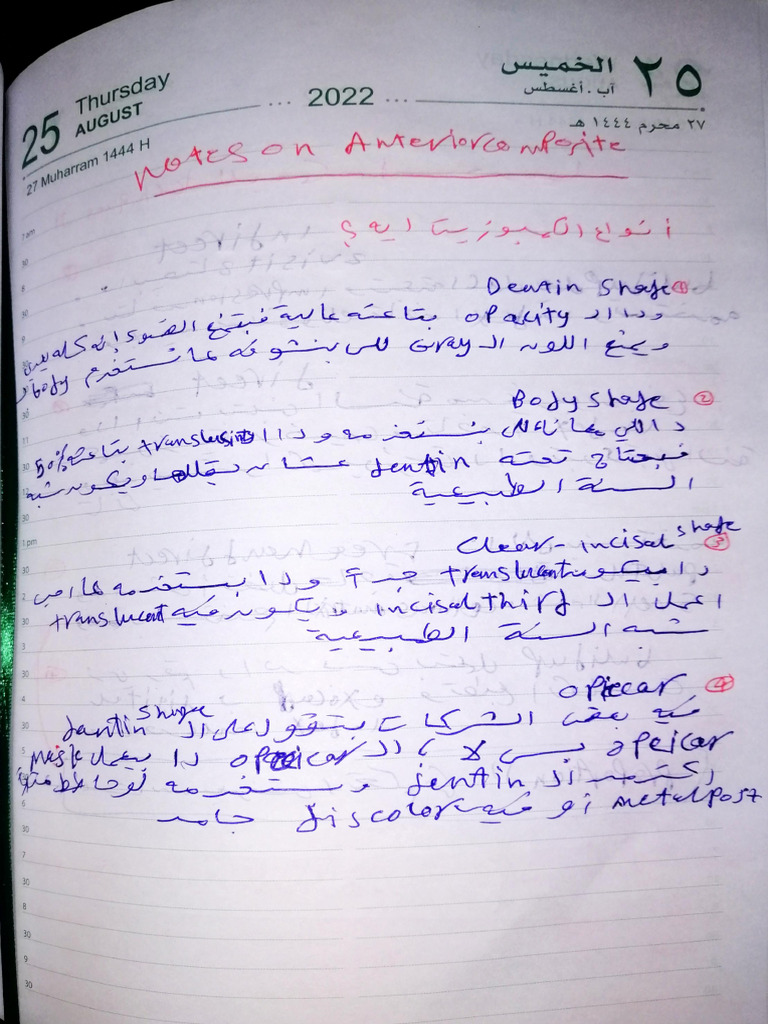 25 Thursday AUGUST
27 Muharram 1444 H
... 2022 ...
٢٥ الخميس
آب . أغسطس
٢٧ محرم ١٤٤٤ هـ
Notes on Anterior composite
أنواع الكمبوزيت ايه ؟
① Dentin Shade
ودا الـ opacity بتاعته عالية فبتمنع الضوء انه كله يعدي
ويمنع اللون الـ Gray اللي بنشوفه لما نستخدم body
② Body Shade
دا اللي معانا اللي بنستخدمه ودا الـ translusint بتاعته 50%
فبيحتاج تحته dentin عشان يقللها ويكون شبه
السنة الطبيعية
③ Clear - incisal shade
دا بيكون translucent جداً ودا بستخدمه لما احب
اعمل الـ incisal third ويكون فيه translucent
شبه السنة الطبيعية
④ opicar
فيه بعض الشركات بتقول على الـ dentin shade
opeicar بس لا ، الـ opeicar دا بيعمل mask
اكتر من الـ dentin وبستخدمه لو حاطط مثلاً
metal post أو فيه discolor جامد